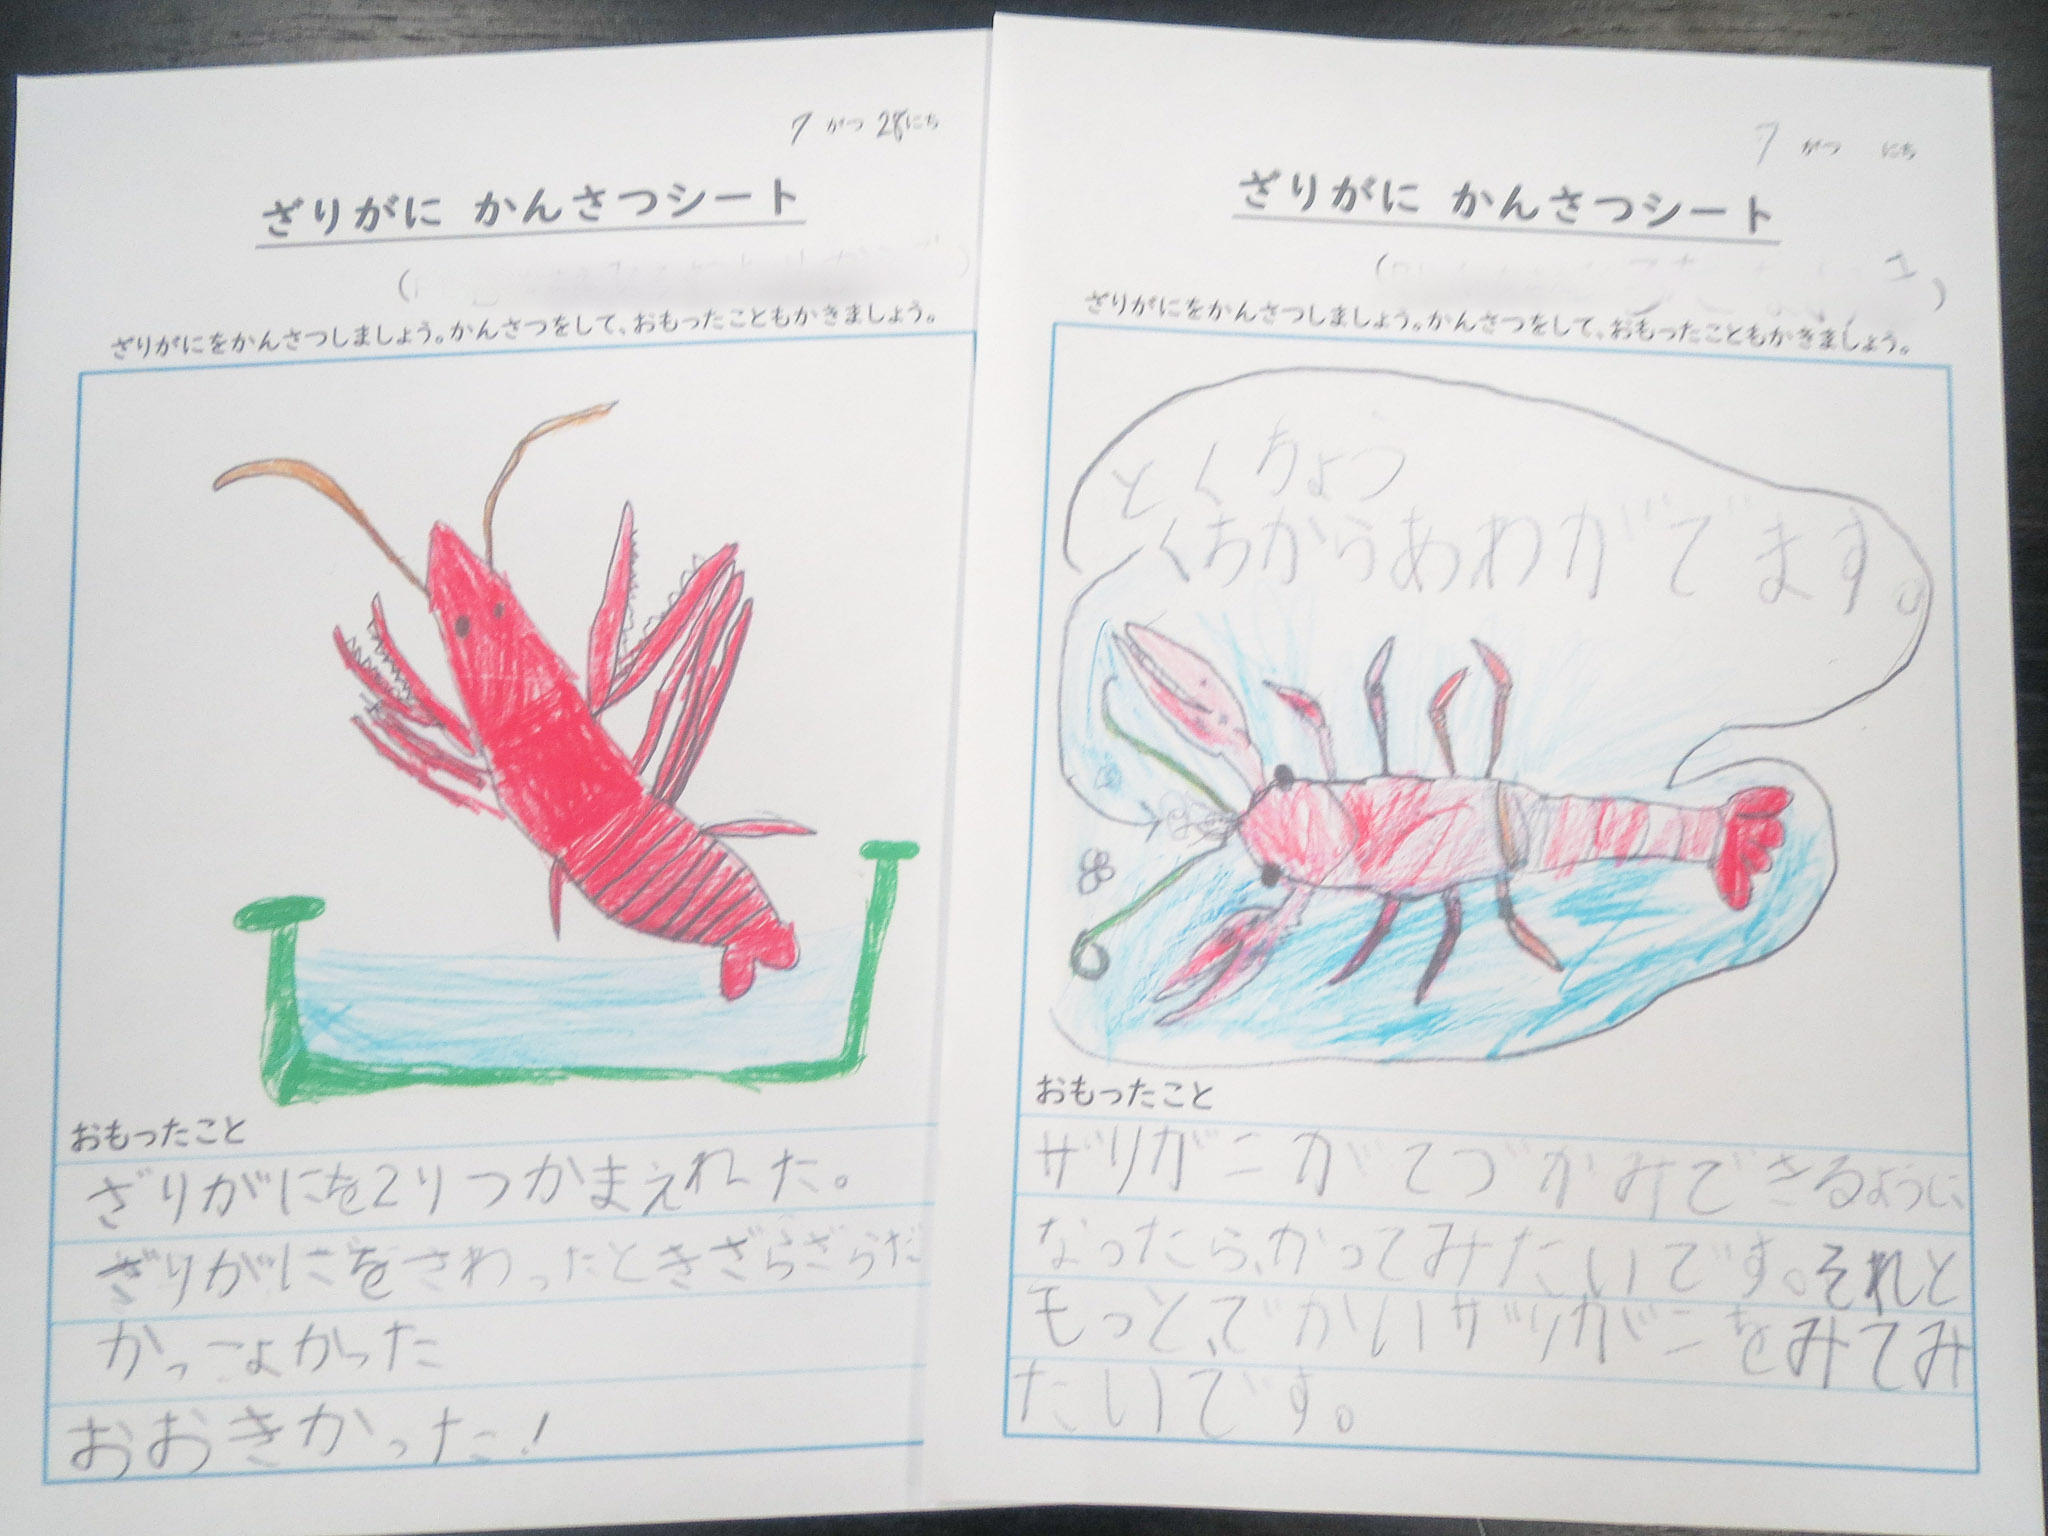 7 がつ 28にち
ざりがに かんさつシート
ざりがにをかんさつしましょう。かんさつをして、おもったこともかきましょう。
おもったこと
ざりがにを2りつかまえれた。
ざりがにをさわったときざらざらだ
かっこよかった
おおきかった!
7 がつ にち
ざりがに かんさつシート
ざりがにをかんさつしましょう。かんさつをして、おもったこともかきましょう。
とくちょつ
くちからあわがでます。
おもったこと
ザリガニがてづかみできるように
なったら、かってみたいです。それと
もっと、でかいザリガニをみてみ
たいです。